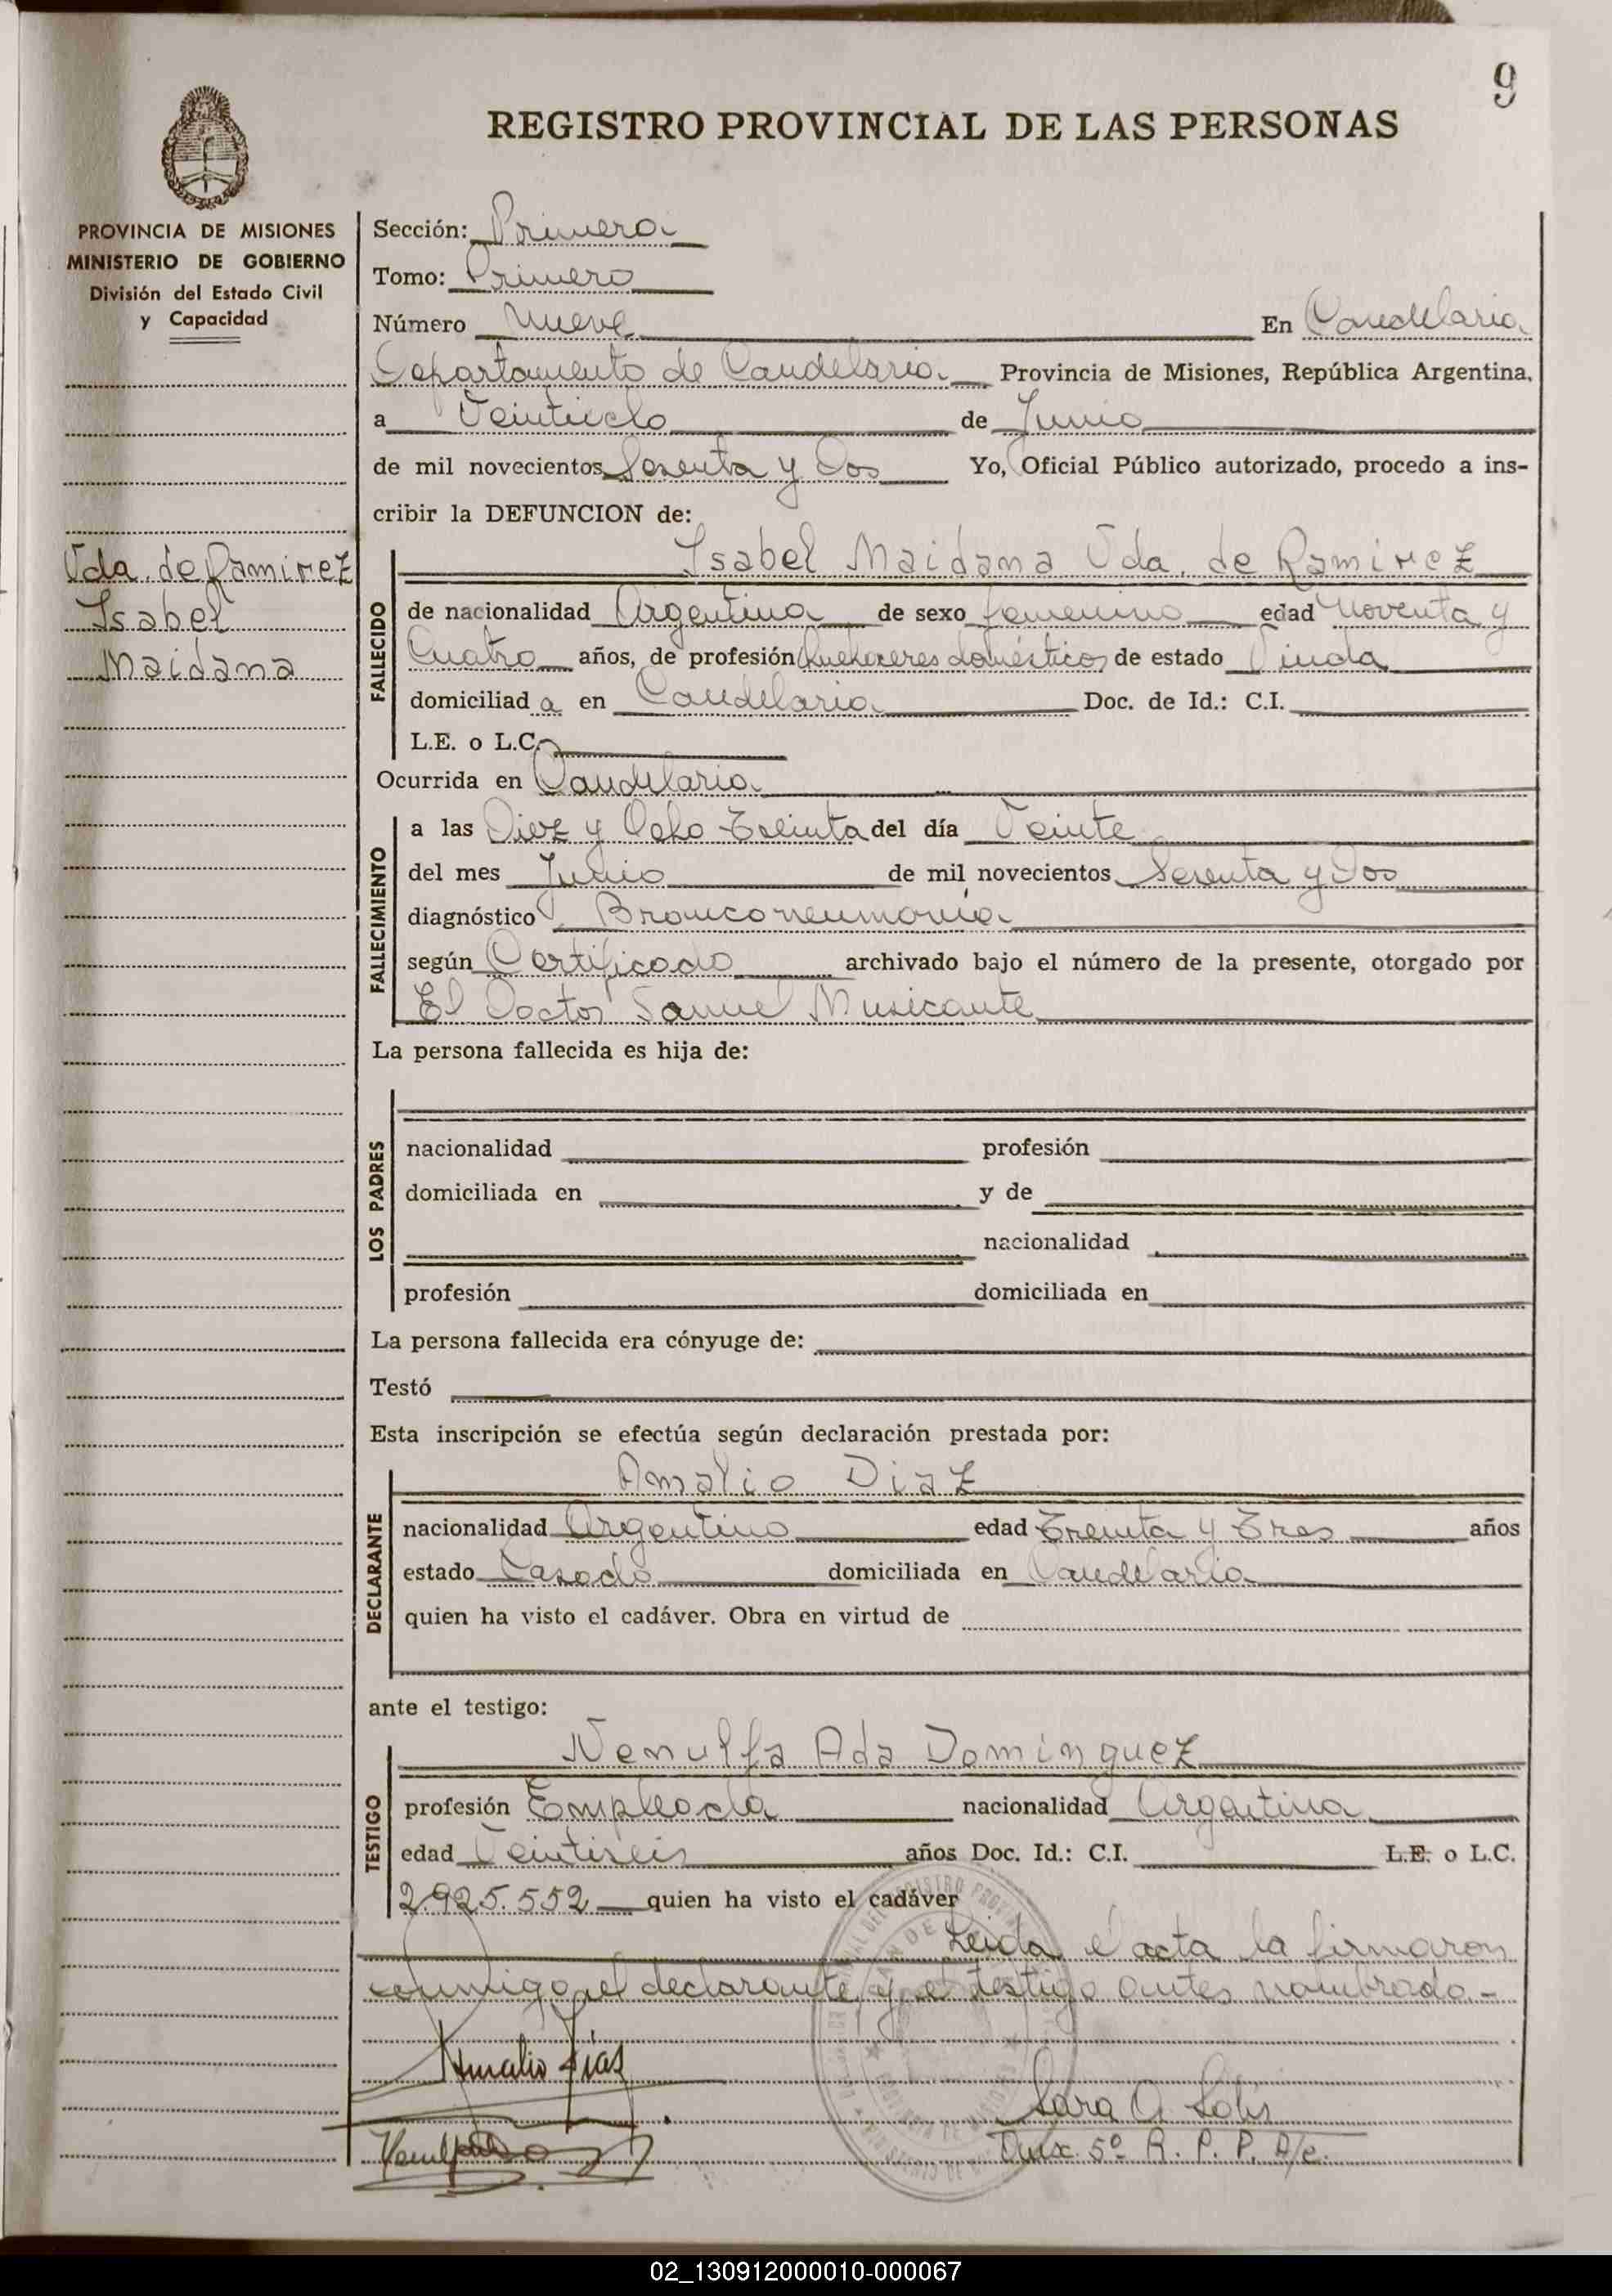 9
REGISTRO PROVINCIAL DE LAS PERSONAS
PROVINCIA DE MISIONES
MINISTERIO DE GOBIERNO
División del Estado Civil
y Capacidad
Vda. de Ramirez
Isabel
Maidana
Sección: Primera
Tomo: Primero
Número Nueve En Candelaria
Departamento de Candelaria Provincia de Misiones, República Argentina,
a de Junio
de mil novecientos Sesenta y Dos Yo, Oficial Público autorizado, procedo a ins-
cribir la DEFUNCION de:
Isabel Maidana Vda. de Ramirez
FALLECIDO
de nacionalidad Argentina de sexo femenino edad Noventa y
Cuatro años, de profesión Quehaceres domésticos de estado Viuda
domiciliad a en Candelaria Doc. de Id.: C.I.
L.E. o L.C.
Ocurrida en Candelaria
FALLECIMIENTO
a las Diez y Ocho Treinta del día Veinte
del mes Junio de mil novecientos Sesenta y Dos
diagnóstico Bronconeumonía
según Certificado archivado bajo el número de la presente, otorgado por
El Doctor Samuel Musicante
La persona fallecida es hija de:
LOS PADRES
nacionalidad profesión
domiciliada en y de
nacionalidad
profesión domiciliada en
La persona fallecida era cónyuge de:
Testó
Esta inscripción se efectúa según declaración prestada por:
DECLARANTE
Amalio Diaz
nacionalidad Argentino edad Treinta y Tres años
estado Casado domiciliada en Candelaria
quien ha visto el cadáver. Obra en virtud de
ante el testigo:
TESTIGO
Nenulfa Ada Dominguez
profesión Empleada nacionalidad Argentina
edad Veintiseis años Doc. Id.: C.I. L.E. o L.C.
2.925.552 quien ha visto el cadáver
Leida el acta la firmaron
conmigo el declarante y el testigo antes nombrado.-
Amalio Díaz
Sara O Solis
Aux. 5º R. P. P. A/c.
02_130912000010-000067